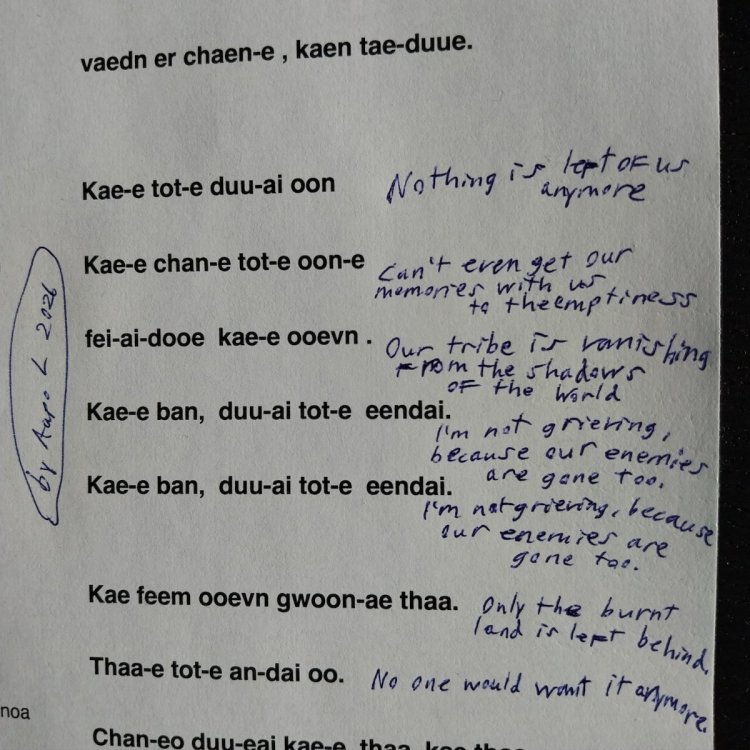 vaedn er chaen-e , kaen tae-duue.
Kae-e tot-e duu-ai oon
Nothing is left of us
anymore
Kae-e chan-e tot-e oon-e
Can't even get our
memories with us
to the emptiness
fei-ai-dooe kae-e ooevn .
Our tribe is vanishing
from the shadows
of the world
Kae-e ban, duu-ai tot-e eendai.
I'm not grieving,
because our enemies
are gone too.
Kae-e ban, duu-ai tot-e eendai.
I'm not grieving, because
our enemies are
gone too.
by Aapo L 2026
Kae feem ooevn gwoon-ae thaa.
Only the burnt
land is left behind.
Thaa-e tot-e an-dai oo.
No one would want it anymore.
noa
Chan-eo duu-eai kae-e thaa